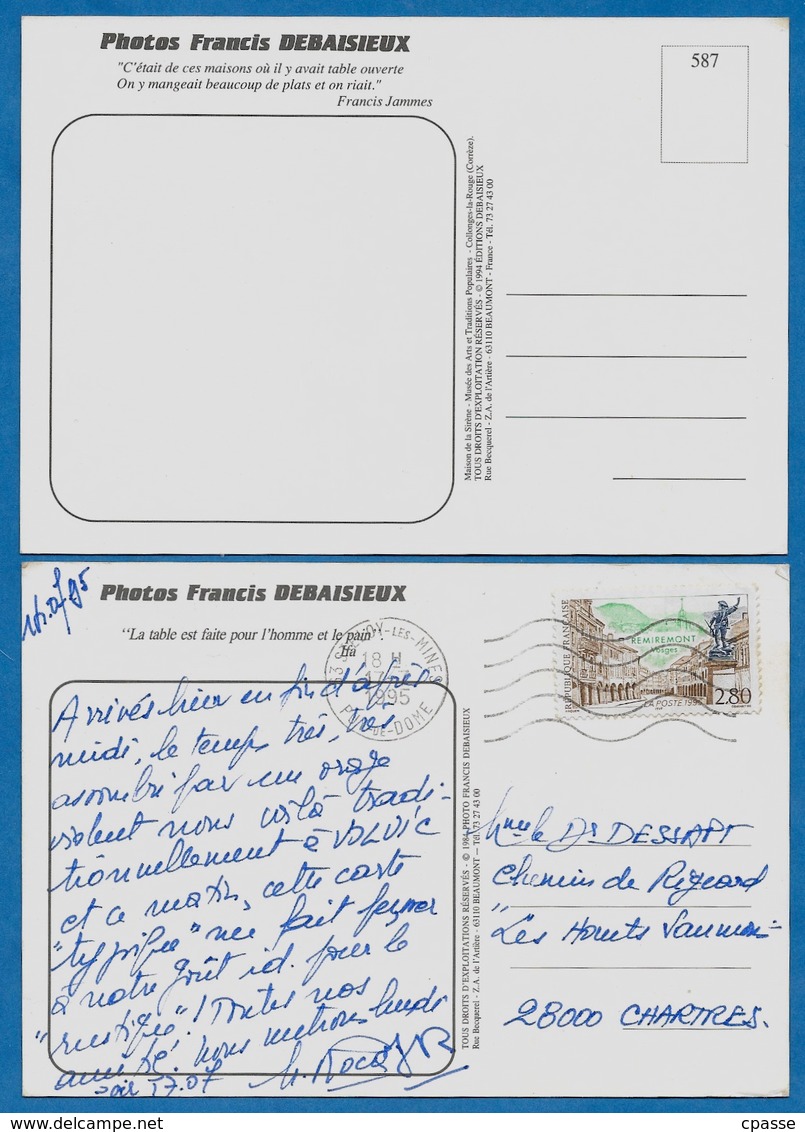 Photos Francis DEBAISIEUX
"C'était de ces maisons où il y avait table ouverte
On y mangeait beaucoup de plats et on riait."
Francis Jammes
587
Maison de la Sirène - Musée des Arts et Traditions Populaires - Collonges-la-Rouge (Corrèze).
TOUS DROITS D'EXPLOITATION RÉSERVÉS - © 1994 ÉDITIONS DEBAISIEUX
Rue Becquerel - Z.A. de l'Artière - 63110 BEAUMONT - France - Tél. 73 27 43 00
16.07.95
Photos Francis DEBAISIEUX
"La table est faite pour l'homme et le pain"
-LES-MINES
18 H
1995
PUY-DE-DOME
RÉPUBLIQUE FRANÇAISE
REMIREMONT
Vosges
2,80
LA POSTE 1995
Arrivés hier en fin d'après
midi, le temps très, très
assombri par un orage
violent nous voilà tradi-
tionnellement à VOLVIC
et ce matin, cette carte
me fait penser
à notre goût id. pour le
"rustique"! Toutes nos
amitiés. nous rentrons lundi
soir 17.07
TOUS DROITS D'EXPLOITATION RÉSERVÉS - © 1984 PHOTO FRANCIS DEBAISIEUX
Rue Becquerel - Z.A. de l'Artière - 63110 BEAUMONT — Tél. 73 27 43 00
Mme le Dr DESSAPT
Chemin de
"Les Hauts
28000 CHARTRES.
cpasse